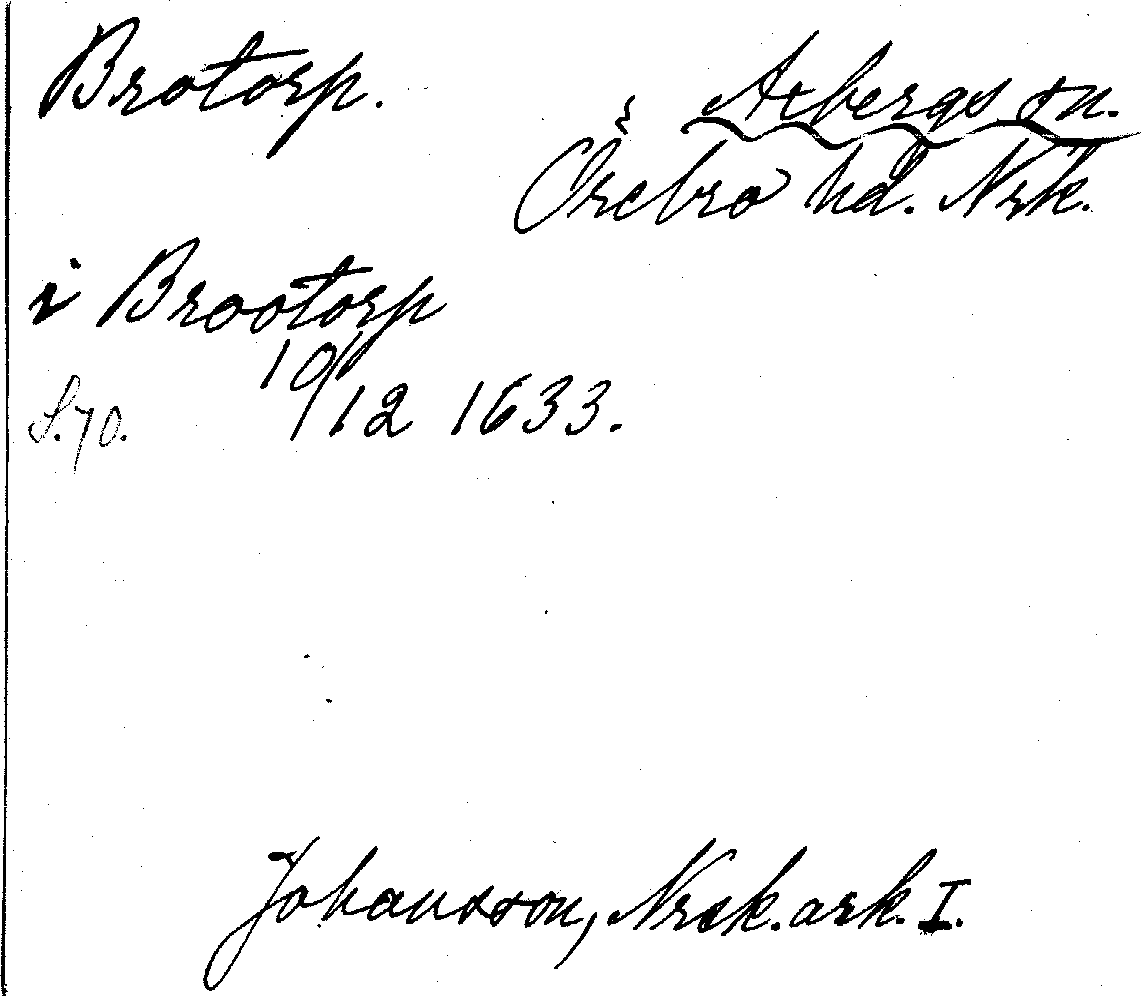 Brotorp. Axbergs sn.
Örebro hd. Nrk.
i Brootorp
S. 70. 10/12 1633.
Johansson, Nrek. ark. I.